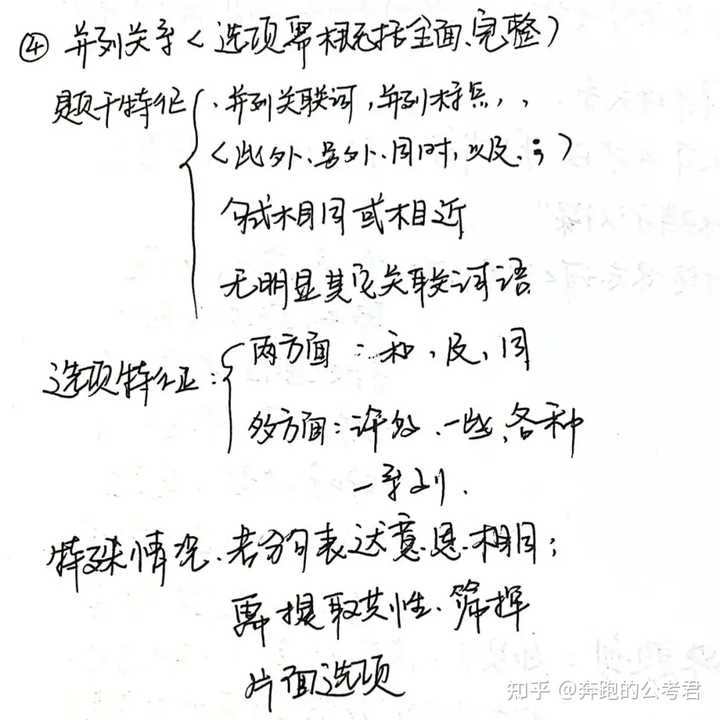 ④ 并列关系<选项需概括全面、完整)
题干特征 . 并列关联词,并列标点,,
<此外、另外、同时,以及.;)
句式相同或相近
无明显其它关联词语
选项特征: 两方面:和、及、同
多方面:许多、一些、各种
一系列.
特殊情况、若分句表达意思相同;
需提取共性、筛掉
片面选项
知乎 @奔跑的公考君